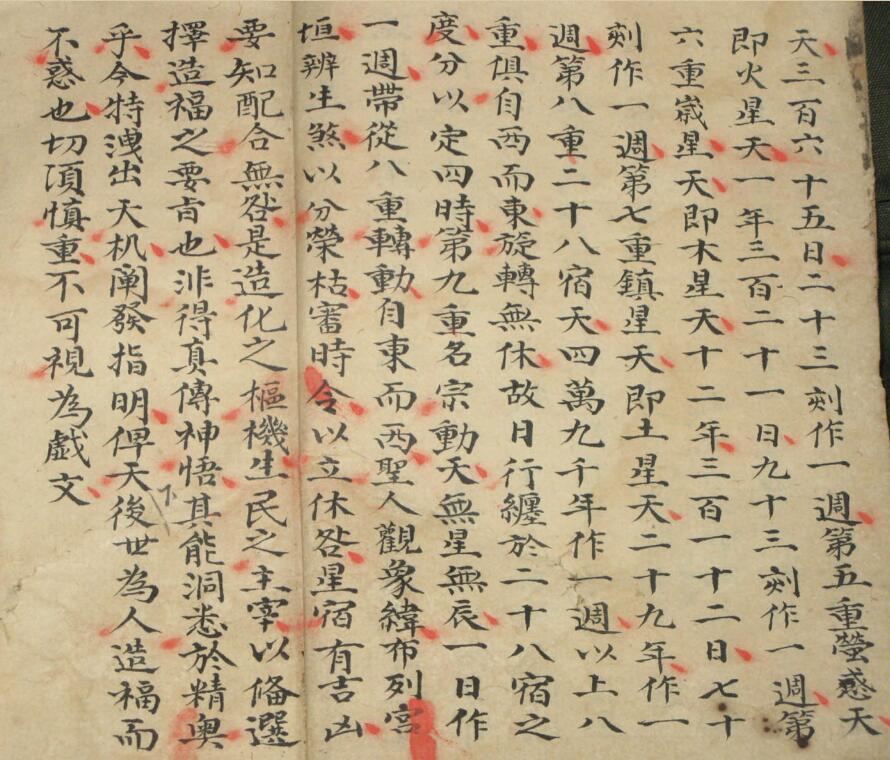 天三百六十五日二十三刻作一週第五重螢惑天
即火星天一年三百二十一日九十三刻作一週第
六重嵗星天即木星天十二年三百一十二日七十
刻作一週第七重鎮星天即土星天二十九年作一
週第八重二十八宿天四萬九千年作一週以上八
重俱自西而東旋轉無休故日行纏於二十八宿之
度分以定四時第九重名宗動天無星無辰一日作
一週帶從八重轉動自東而西聖人觀象緯布列宮
垣辨生煞以分榮枯審時令以立休咎星宿有吉凶
要知配合無咎是造化之樞機生民之主宰以俻選
擇造福之要旨也非得真傳神悟其能洞悉於精奥
乎今特洩出天机阐發指明俾天下後世為人造福而
不惑也切須慎重不可視為戲文